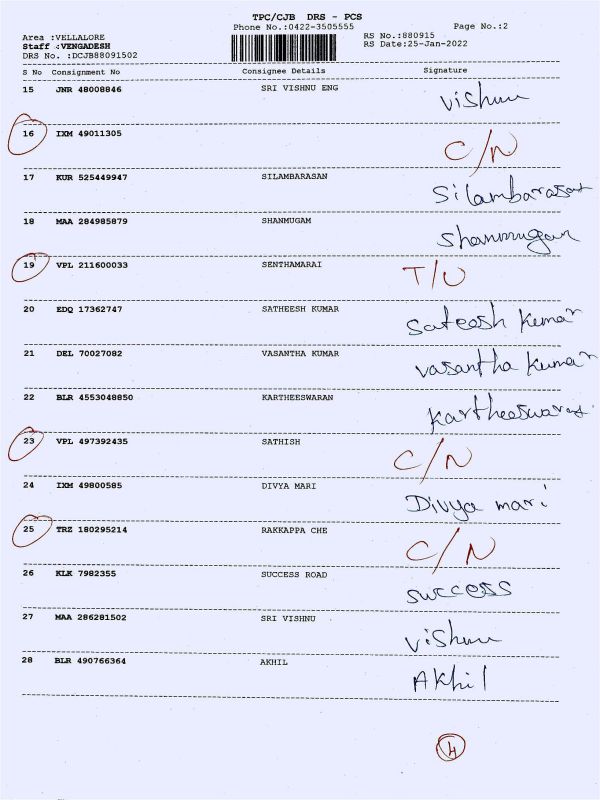 TPC/CJB DRS - PCS
Phone No.:0422-3505555 Page No.:2
Area :VELLALORE RS No.:880915
Staff :VENGADESH RS Date:25-Jan-2022
DRS No. :DCJB88091502
S No Consignment No Consignee Details Signature
15 JNR 48008846 SRI VISHNU ENG Vishnu
16 IXM 49011305 C/N
17 KUR 525449947 SILAMBARASAN Silambarasan
18 MAA 284985879 SHANMUGAM Shanmugam
19 VPL 211600033 SENTHAMARAI T/U
20 EDQ 17362747 SATHEESH KUMAR Sateesh Kumar
21 DEL 70027082 VASANTHA KUMAR Vasantha Kumar
22 BLR 4553048850 KARTHEESWARAN Kartheeswaran
23 VPL 497392435 SATHISH C/N
24 IXM 49800585 DIVYA MARI Divya mari
25 TRZ 180295214 RAKKAPPA CHE C/N
26 KLK 7982355 SUCCESS ROAD success
27 MAA 286281502 SRI VISHNU Vishnu
28 BLR 490766364 AKHIL Akhil
4